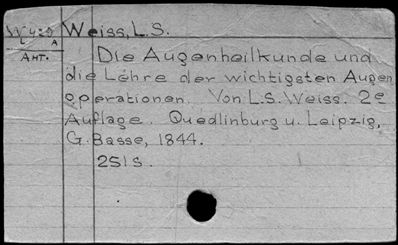 Weiss, L.S.
L A
Ант.
Die Augenheilkunde und
die Lehre der wichtigsten Augen
operationen. Von L.S. Weiss. 2e
Auflage. Quedlinburg u. Leipzig,
G. Basse, 1844.
251 s.